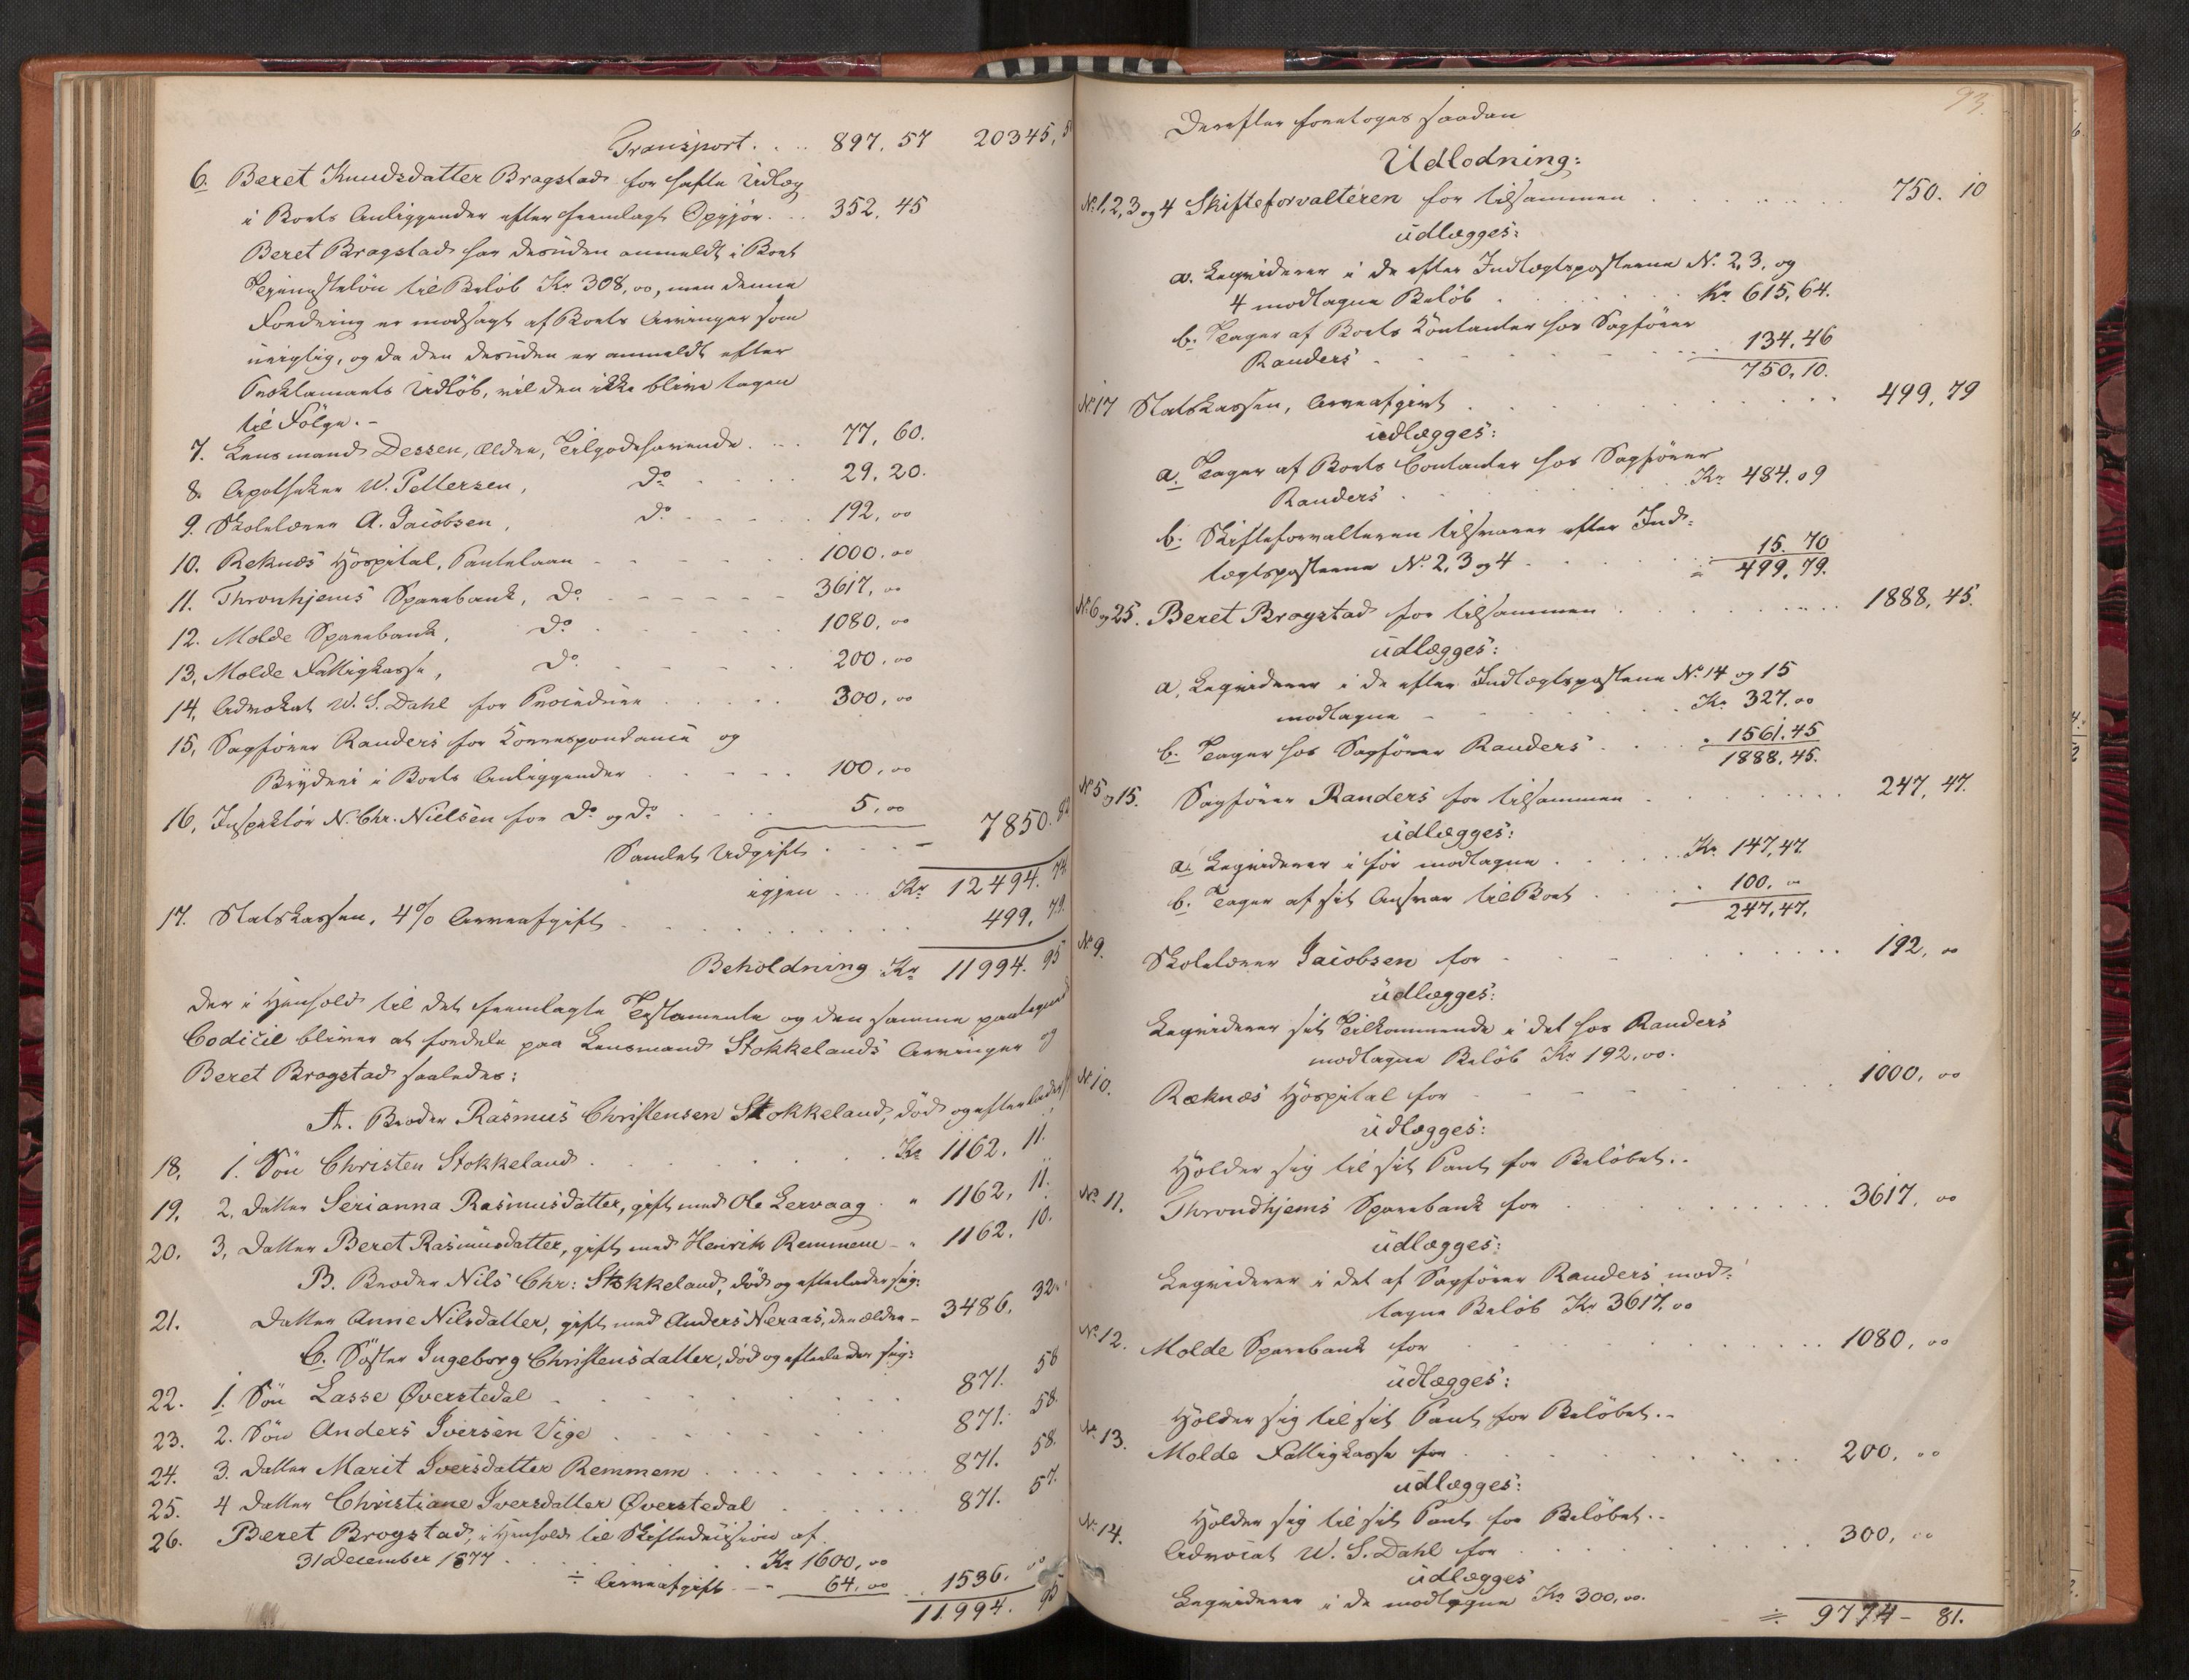 Transport. . . . 897. 57 20345, 5
6. Beret Knudsdatter Bragstad for hafte Udlæg
i Boets Anliggender efter fremlagt Opgjør. . . 352. 45
Beret Bragstad har desuden anmeldt i Boet
Tjenesteløn til Beløb Kr 308,00, men denne
Fordring er modsagt af Boets Arvinger som
urigtig, og da den desuden er anmeldt efter
Proklamaets Udløb, vil den ikke blive tagen
til Følge. -
7. Lensmand Dessen, ældre, Tilgodehavende . . . 77. 60.
8. Apotheker W. Pettersen, Do . . . 29. 20.
9. Skolelærer A. Jacobsen, Do . . . 192, 00
10. Reknæs Hospital, Pantelaan . . . 1000. 00
11. Thronhjems Sparebank, Do . . . 3617, 00
12. Molde Sparebank, Do . . . 1080, 00
13, Molde Fattigkasse, Do . . . 200. 00
14, Advokat W. S. Dahl for Procedure . . . 300, 00
15, Sagfører Randers for Korrespondance og
Bryderi i Boets Anliggender . . . 100, 00
16, Inspektør N. Chr. Nielsen for Do og Do . . . 5, 00 7850. 82
Samlet Udgift . . .
igjen . . . Kr 12494. 74
17. Statskassen, 4% Arveafgift . . . 499. 79.
Beholdning Kr 11994. 95
der i Henhold til det fremlagte Testamente og den samme paategnede
Codicil bliver at fordele paa Lensmand Stokkelands Arvinger og
Beret Bragstad saaledes:
A. Broder Rasmus Christensen Stokkeland, død og efterlader
18, 1. Søn Christen Stokkeland . . . Kr 1162. 11.
19, 2. datter Serianna Rasmusdatter, gift med Ole Lervaag . " 1162, 11.
20. 3, datter Beret Rasmusdatter, gift med Henrik Remmem - " 1162. 10.
B. Broder Nils Chr: Stokkeland, død og efterlader sig:
21. datter Anne Nilsdatter, gift med Anders Neraas, den ældre - 3486. 32.
C. Søster Ingeborg Christensdatter, død og efterlader sig:
22. 1. Søn Lasse Øverstedal . . . 871. 58
23. 2. Søn Anders Iversen Vige . . . 871. 58.
24. 3. datter Marit Iversdatter Remmem . . . 871. 58.
25. 4 datter Christiane Iversdatter Øverstedal . . . 871. 57.
26. Beret Brogstad, i Henhold til Skiftedecision af
31 december 1877 . . . Kr 1600, 00
÷ Arveafgift - - 64, 00 . . 1536. 00
11994. 95
93.
Derefter foretoges saadan
Udlodning:
No 1, 2, 3 og 4 Skifteforvalteren for tilsammen . . . 750. 10
udlægges:
a. Leqviderer i de efter Indtægtsposterne No 2, 3, og
4 modtagne Beløb . . . Kr 615, 64.
b. Tager af Boets Kontanter hos Sagfører
Randers . . . 134. 46
750. 10.
No 17 Statskassen, Arveafgivt . . . 499, 79
udlægges:
a. Tager af Boets Contanter hos Sagfører
Randers . . . Kr 484. 09
b. Skifteforvalteren tilsvarer efter Ind-
tægtsposterne No 2, 3 og 4 . . . 15. 70
= 499. 79.
No 6 og 25. Beret Brogstad for tilsammen . . . 1888, 45.
udlægges:
a. Leqviderer i de efter Indtægtsposterne No 14 og 15
modtagne . . . Kr 327. 00
b. Tager hos Sagfører Randers . . . 1561. 45
1888. 45.
No 5 og 15. Sagfører Randers for tilsammen . . . 247, 47.
udlægges:
a. Leqviderer i før modtagne . . . Kr 147, 47.
b. Tager af sit Ansvar til Boet . . . 100. 00
247, 47.
No 9. Skolelærer Jacobsen for . . . 192, 00
udlægges:
Leqviderer sit Tilkommende i det hos Randers
modtagne Beløb Kr 192, 00.
No 10. Reknæs Hospital for . . . 1000, 00
udlægges:
Holder sig til sit Pant for Beløbet. -
No 11. Throndhjems Sparebank for . . . 3617, 00
udlægges:
Leqviderer i det af Sagfører Randers mod-
tagne Beløb Kr 3617, 00
No 12. Molde Sparebank for . . . 1080, 00
udlægges:
Holder sig til sit Pant for Beløbet. -
No 13. Molde Fattigkasse for . . . 200, 00
udlægges:
Holder sig til sit Pant for Beløbet. -
No 14. Advocat W. S. Dahl for . . . 300, 00
udlægges
Leqviderer i de modtagne Kr 300, 00.
÷ 9774 - 81.